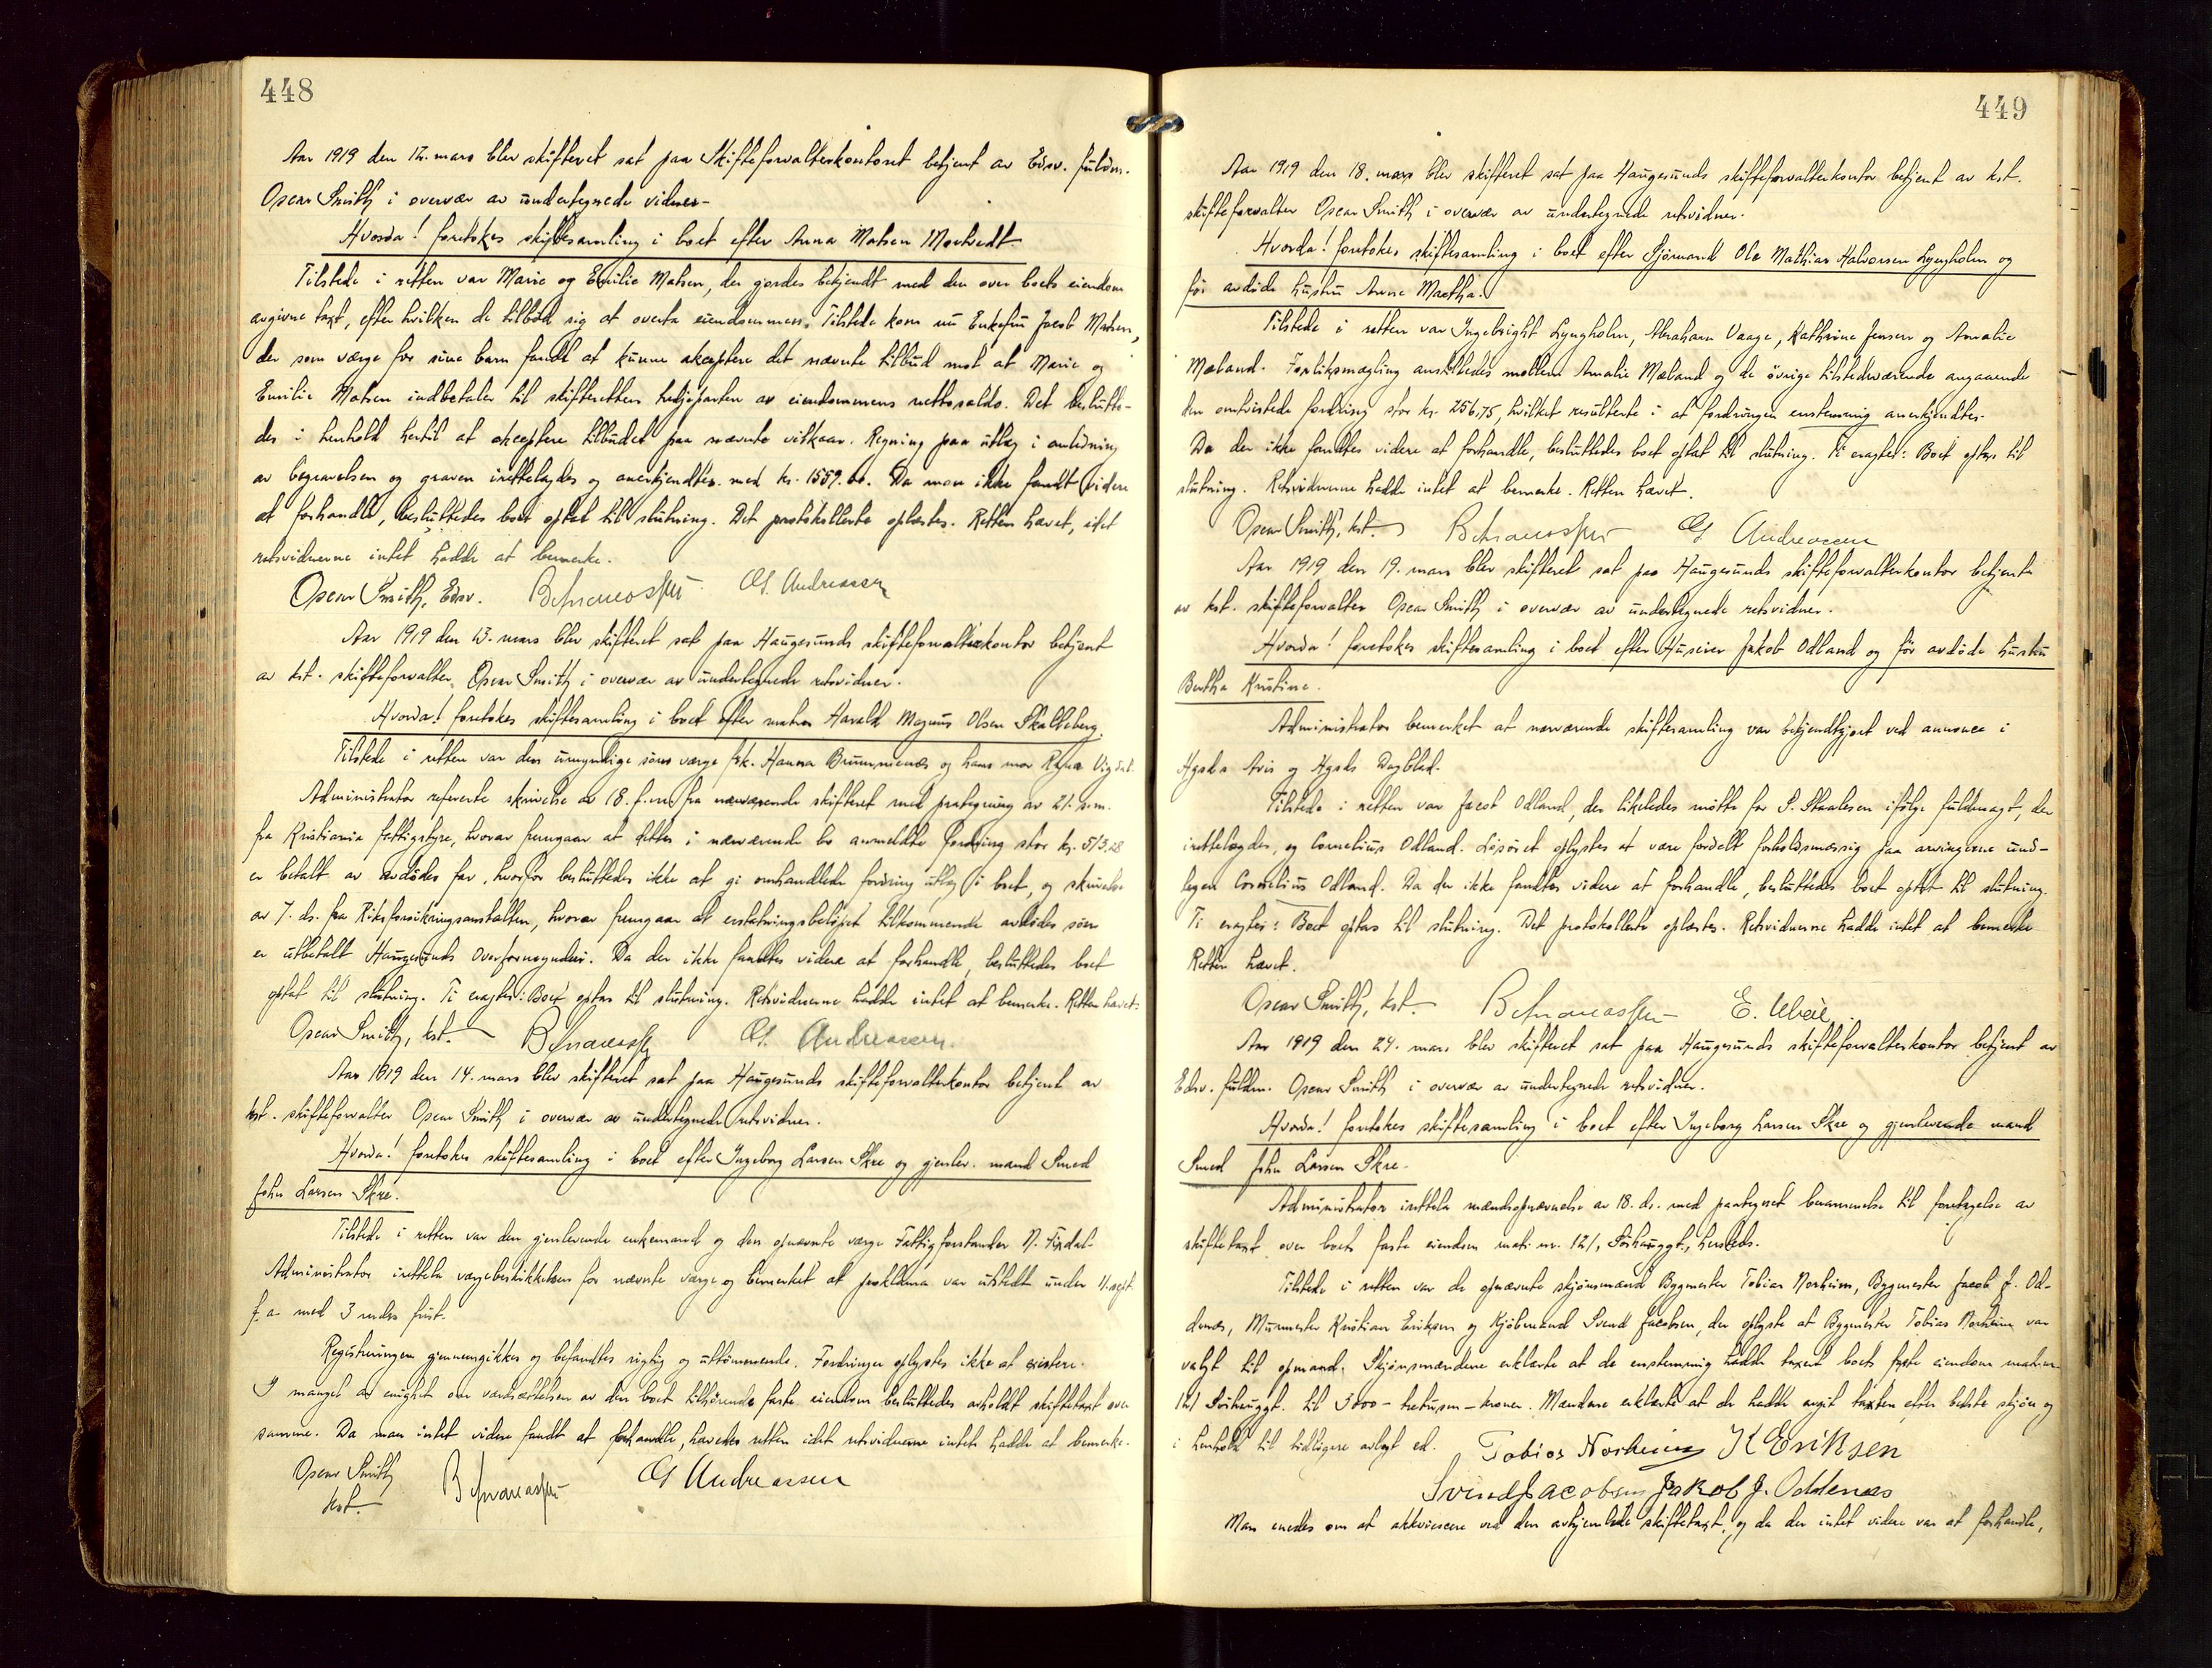 448
Aar 1919 den 12. mars blev skifteret sat paa Skifteforvalterkontoret betjent av Edsv. fuldm.
Oscar Smith i overvær av undertegnede vidner-
Hvorda! foretokes skiftesamling i boet efter Anna Matsen Mortvedt.
Tilstede i retten var Marie og Emilie Matsen, der gjordes bekjendt med den over boets eiendom
avgivne taxt, efter hvilken de tilbød sig at overta eiendommen. Tilstede kom nu Enkefru Jacob Matsen,
der som værge for sine barn fandt at kunne akceptere det nævnte tilbud mot at Marie og
Emilie Matsen indbetaler til skifteretten tredjeparten av eiendommens nettosaldo. Det beslutte-
des i henhold hertil at akceptere tilbudet paa nævnte vilkaar. Regning paa utlæg i anledning
av begravelsen og graven irettelagdes og anerkjendtes med kr. 1559.60. Da man ikke fandt videre
at forhandle, besluttedes boet optat til slutning. Det protokollerte oplæstes. Retten hævet, idet
retsvidnerne intet hadde at bemerke.
Oscar Smith, Edsv. G. Andreassen
Aar 1919 den 13. mars blev skifteret sat paa Haugesunds skifteforvalterkontor betjent
av kst. skifteforvalter Oscar Smith i overvær av undertegnede retsvidner.
Hvorda! foretokes skiftesamling i boet efter matros Harald Magnus Olsen Skalleberg.
Tilstede i retten var den umyndige søns værge frk. Hanna Brummenæs og hans mor
Administrator refererte skrivelse av 18. f.m. fra nærværende skifteret med paategning av 21. s.m.
fra Kristiania fattigstyre, hvorav fremgaar at dettes i nærværende bo anmeldte fordring stor kr. 513,28
er betalt av avdødes far, hvorfor besluttedes ikke at gi omhandlede fordring utlæg i boet, og skrivelse
av 7. ds. fra Riksforsikringsanstalten, hvorav fremgaar at erstatningsbeløpet tilkommende avdødes søn
er utbetalt Haugesunds Overformynderi. Da der ikke fandtes videre at forhandle, besluttedes boet
optat til slutning. Ti eragtes: Boet optas til slutning. Retsvidnerne hadde intet at bemerke. Retten hævet.
Oscar Smith, kst. G. Andreassen.
Aar 1919 den 14. mars blev skifteret sat paa Haugesunds skifteforvalterkontor betjent av
kst. skifteforvalter Oscar Smith i overvær av undertegnede retsvidner.
Hvorda! foretokes skiftesamling i boet efter Ingeborg Larsen Skre og gjenlev. mand Smed
John Larsen Skre.
Tilstede i retten var den gjenlevende enkemand og den opnævnte værge Fattigforstander N. Fixdal.
Administrator irettela værgebeskikkelsen for nævnte værge og bemerket at proklama var utstedt under 11. sept.
f.a. med 3 mdrs frist.
Registreringen gjennemgikkes og befandtes rigtig og uttømmende. Fordringer oplystes ikke at existere.
I mangel av enighet om værdsættelsen av den boet tilhørende faste eiendom besluttedes avholdt skiftetaxt over
samme. Da man intet videre fandt at forhandle, hævedes retten idet retsvidnerne intet hadde at bemerke.
Oscar Smith G Andreassen
kst.
449
Aar 1919 den 18. mars blev skifteret sat paa Haugesunds skifteforvalterkontor betjent av kst.
skifteforvalter Oscar Smith i overvær av undertegnede retsvidner.
Hvorda! foretokes skiftesamling i boet efter Sjømand Ole Mathias Halvorsen Lyngholm og
før avdøde hustru Anne Martha.
Tilstede i retten var Ingebright Lyngholm, Abraham Vaage, Kathrine Jensen og Amalie
Mæland. Forliksmægling anstilledes mellem Amalie Mæland og de øvrige tilstedeværende angaaende
den omtvistede fordring stor kr. 256,75, hvilket resulterte i at fordringen enstemmig anerkjendtes.
Da der ikke fandtes videre at forhandle, besluttedes boet optat til slutning. Ti eragtet: Boet optas til
slutning. Retsvidnerne hadde intet at bemerke. Retten hævet.
Oscar Smith, kst. G Andreassen
Aar 1919 den 19. mars blev skifteret sat paa Haugesunds skifteforvalterkontor betjent
av kst. skifteforvalter Oscar Smith i overvær av undertegnede retsvidner.
Hvorda! foretokes skiftesamling i boet efter Huseier Jakob Odland og før avdøde hustru
Bertha Kristine.
Administrator bemerket at nærværende skiftesamling var bekjendtgjort ved annonce i
Hgsds Avis og Hgsds Dagblad.
Tilstede i retten var Jacob Odland, der likeledes møtte for S. Staalesen ifølge fuldmagt, der
irettelagdes, og Cornelius Odland. Løsøret oplystes at være fordelt forholdsmæssig paa arvingerne und-
tagen Cornelius Odland. Da der ikke fandtes videre at forhandle, besluttedes boet optat til slutning.
Ti eragtes: Boet optas til slutning. Det protokollerte oplæstes. Retsvidnerne hadde intet at bemerke
Retten hævet.
Oscar Smith, kst.
Aar 1919 den 24. mars blev skifteret sat paa Haugesunds skifteforvalterkontor betjent av
Edsv. fuldm. Oscar Smith i overvær av undertegnede retsvidner.
Hvorda! foretokes skiftesamling i boet efter Ingeborg Larsen Skre og gjenlevende mand
Smed John Larsen Skre.
Administrator irettela mændsopnævnelse av 18. ds. med paategnet berammelse til foretagelse av
skiftetaxt over boets faste eiendom matr. nr. 121, Sørhauggt., hersteds.
Tilstede i retten var de opnævnte skjønsmænd Bygmester Tobias Norheim, Bygmester Jacob J. Od-
denæs, Murmester Kristian Eriksen og Kjøbmand Svend Jacobsen, der oplyste at Bygmester Tobias Norheim var
valgt til opmand. Skjønsmændene erklærte at de enstemmig hadde taxert boets faste eiendom matr. nr.
121 Sørhauggt. til 3000 - tretusen - kroner. Mændene erklærte at de hadde avgit taxten efter bedste skjøn og
i henhold til tidligere avlagt ed. Tobias Norheim K Eriksen
Svend Jacobsen Jakob J. Oddenæs
Man enedes om at akkviescere ved den avhjemlede skiftetaxt, og da der intet videre var at forhandle,